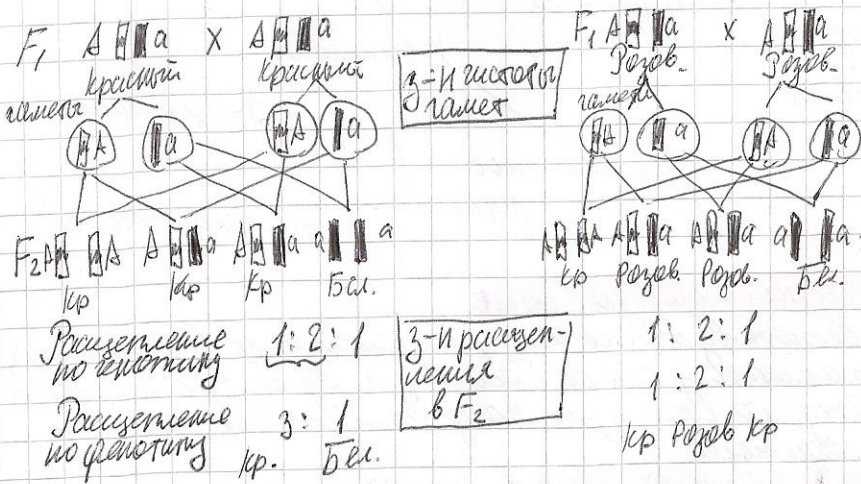 F₁ А а х А а
Красный Красный
гаметы
А а А а
F₂ А А А а А а а а
Кр Кр Кр Бел.
Расщепление по генотипу 1 : 2 : 1
Расщепление по фенотипу 3 : 1
кр. Бел.
З-н чистоты
гамет
З-н расщеп-
ления
в F₂
F₁ А а х А а
Розов. Розов.
гаметы
А а А а
А А А а А а а а
Кр Розов. Розов. Бел.
1 : 2 : 1
1 : 2 : 1
Кр Розов Кр